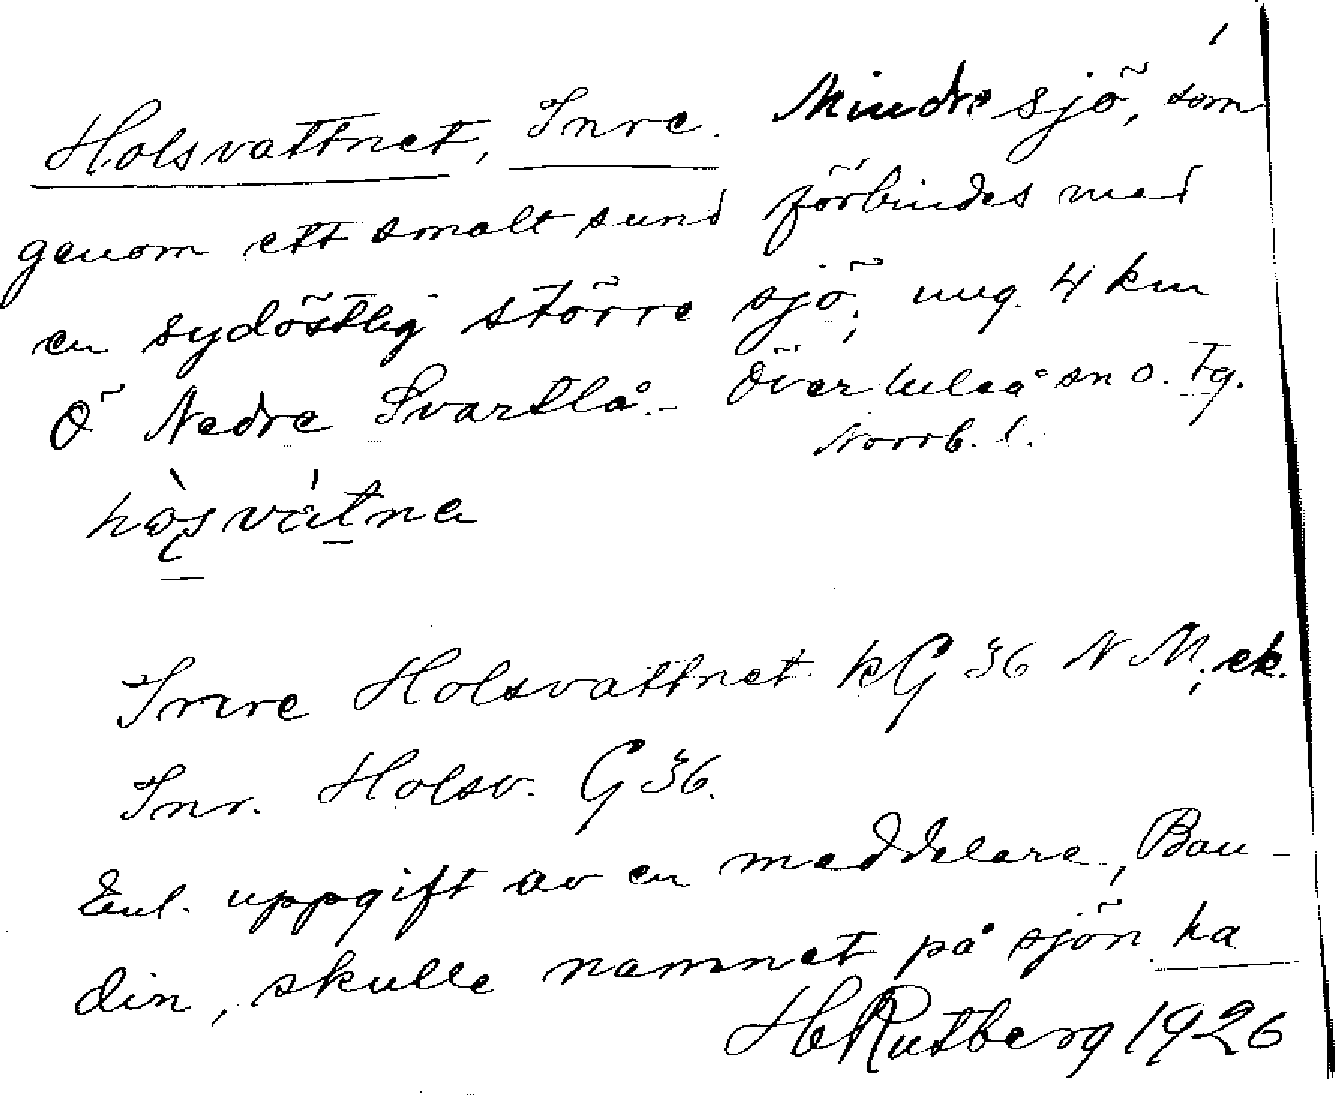 1
Holsvattnet, Inre. Mindre sjö, som
genom ett smalt sund förbindes med
en sydöstlig större sjö, ung. 4 km
Ö Nedre Svartlå. – Överluleå sn o. tg.
Norrb. l.
Inre Holsvattnet kG 36 N M, ek.
Inr. Holsv. G 36.
Enl. uppgift av en meddelare, Bau-
din, skulle namnet på sjön ha
H Rutberg 1926